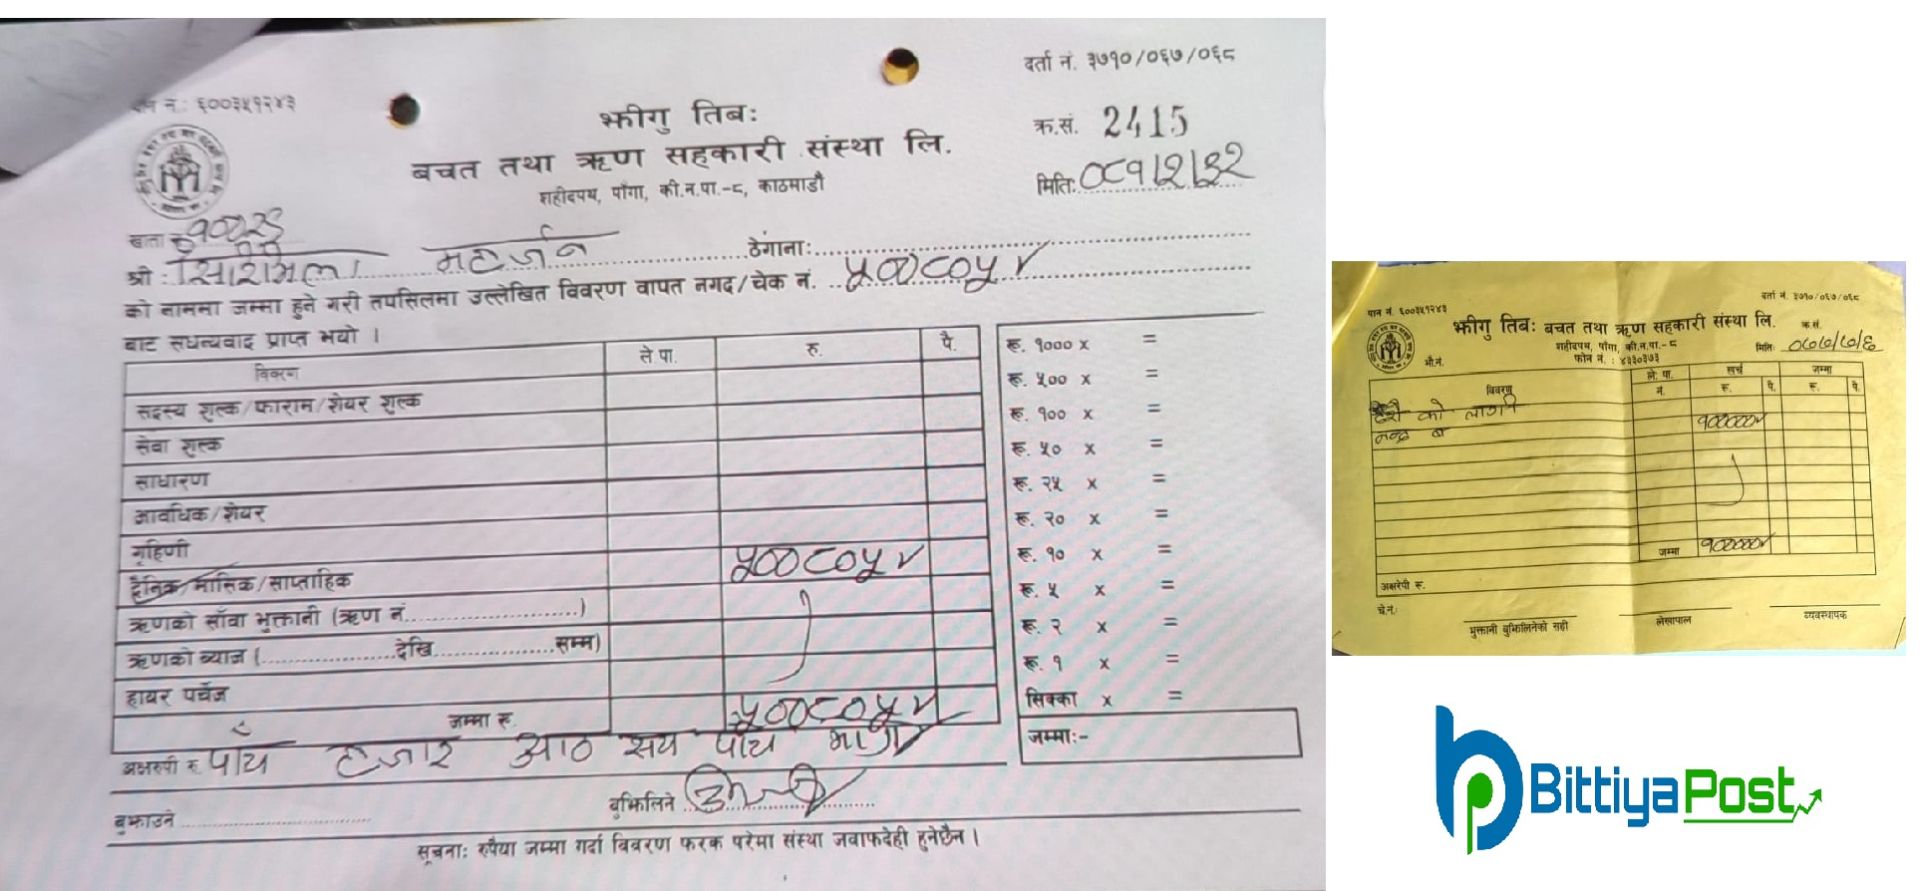 पान नं.: ६००३५१२४३
दर्ता नं. ३७१०/०६७/०६८
भीगु तिबः
बचत तथा ऋण सहकारी संस्था लि.
शहीदपथ, पाँगा, की.न.पा.-८, काठमाडौं
क्र.सं. 2415
मिति: ०८१/२/३२
खाता नं.
श्री : महर्जन ठेगाना:
को नाममा जम्मा हुने गरी तपसिलमा उल्लेखित विवरण वापत नगद/चेक नं.
बाट सधन्यवाद प्राप्त भयो ।
विवरण ले.पा. रु. पै.
सदस्य शुल्क/फाराम/शेयर शुल्क
सेवा शुल्क
साधारण
आवधिक/शेयर
गृहिणी
दैनिक/मासिक/साप्ताहिक
ऋणको साँवा भुक्तानी (ऋण नं.....................)
ऋणको ब्याज (....................देखि....................सम्म)
हायर पर्चेज
जम्मा रु.
अक्षरुपी रु. पाँच हजार आठ सय पाँच मात्र
बुझाउने
बुझिलिने
सूचना: रुपैया जम्मा गर्दा विवरण फरक परेमा संस्था जवाफदेही हुनेछैन ।
रू. १००० x =
रू. ५०० x =
रू. १०० x =
रू. ५० x =
रू. २५ x =
रू. २० x =
रू. १० x =
रू. ५ x =
रू. २ x =
रू. १ x =
सिक्का x =
जम्मा:-
पान नं. ६००३५१२४३
दर्ता नं. ३७१०/०६७/०६८
भीगु तिबः बचत तथा ऋण सहकारी संस्था लि.
शहीदपथ, पाँगा, की.न.पा.-८
फोन नं. : ४३३०३७३
क्र.सं.
मिति: ०७७/७/६
भौ.नं.
विवरण ले. पा. नं. खर्च रु. पै. जम्मा रु. पै.
को लागि
१०००००/
जम्मा १०००००/
अक्षरेपी रु.
चे.नं.:
भुक्तानी बुझिलिनेको सही
लेखापाल
व्यवस्थापक
BittiyaPost